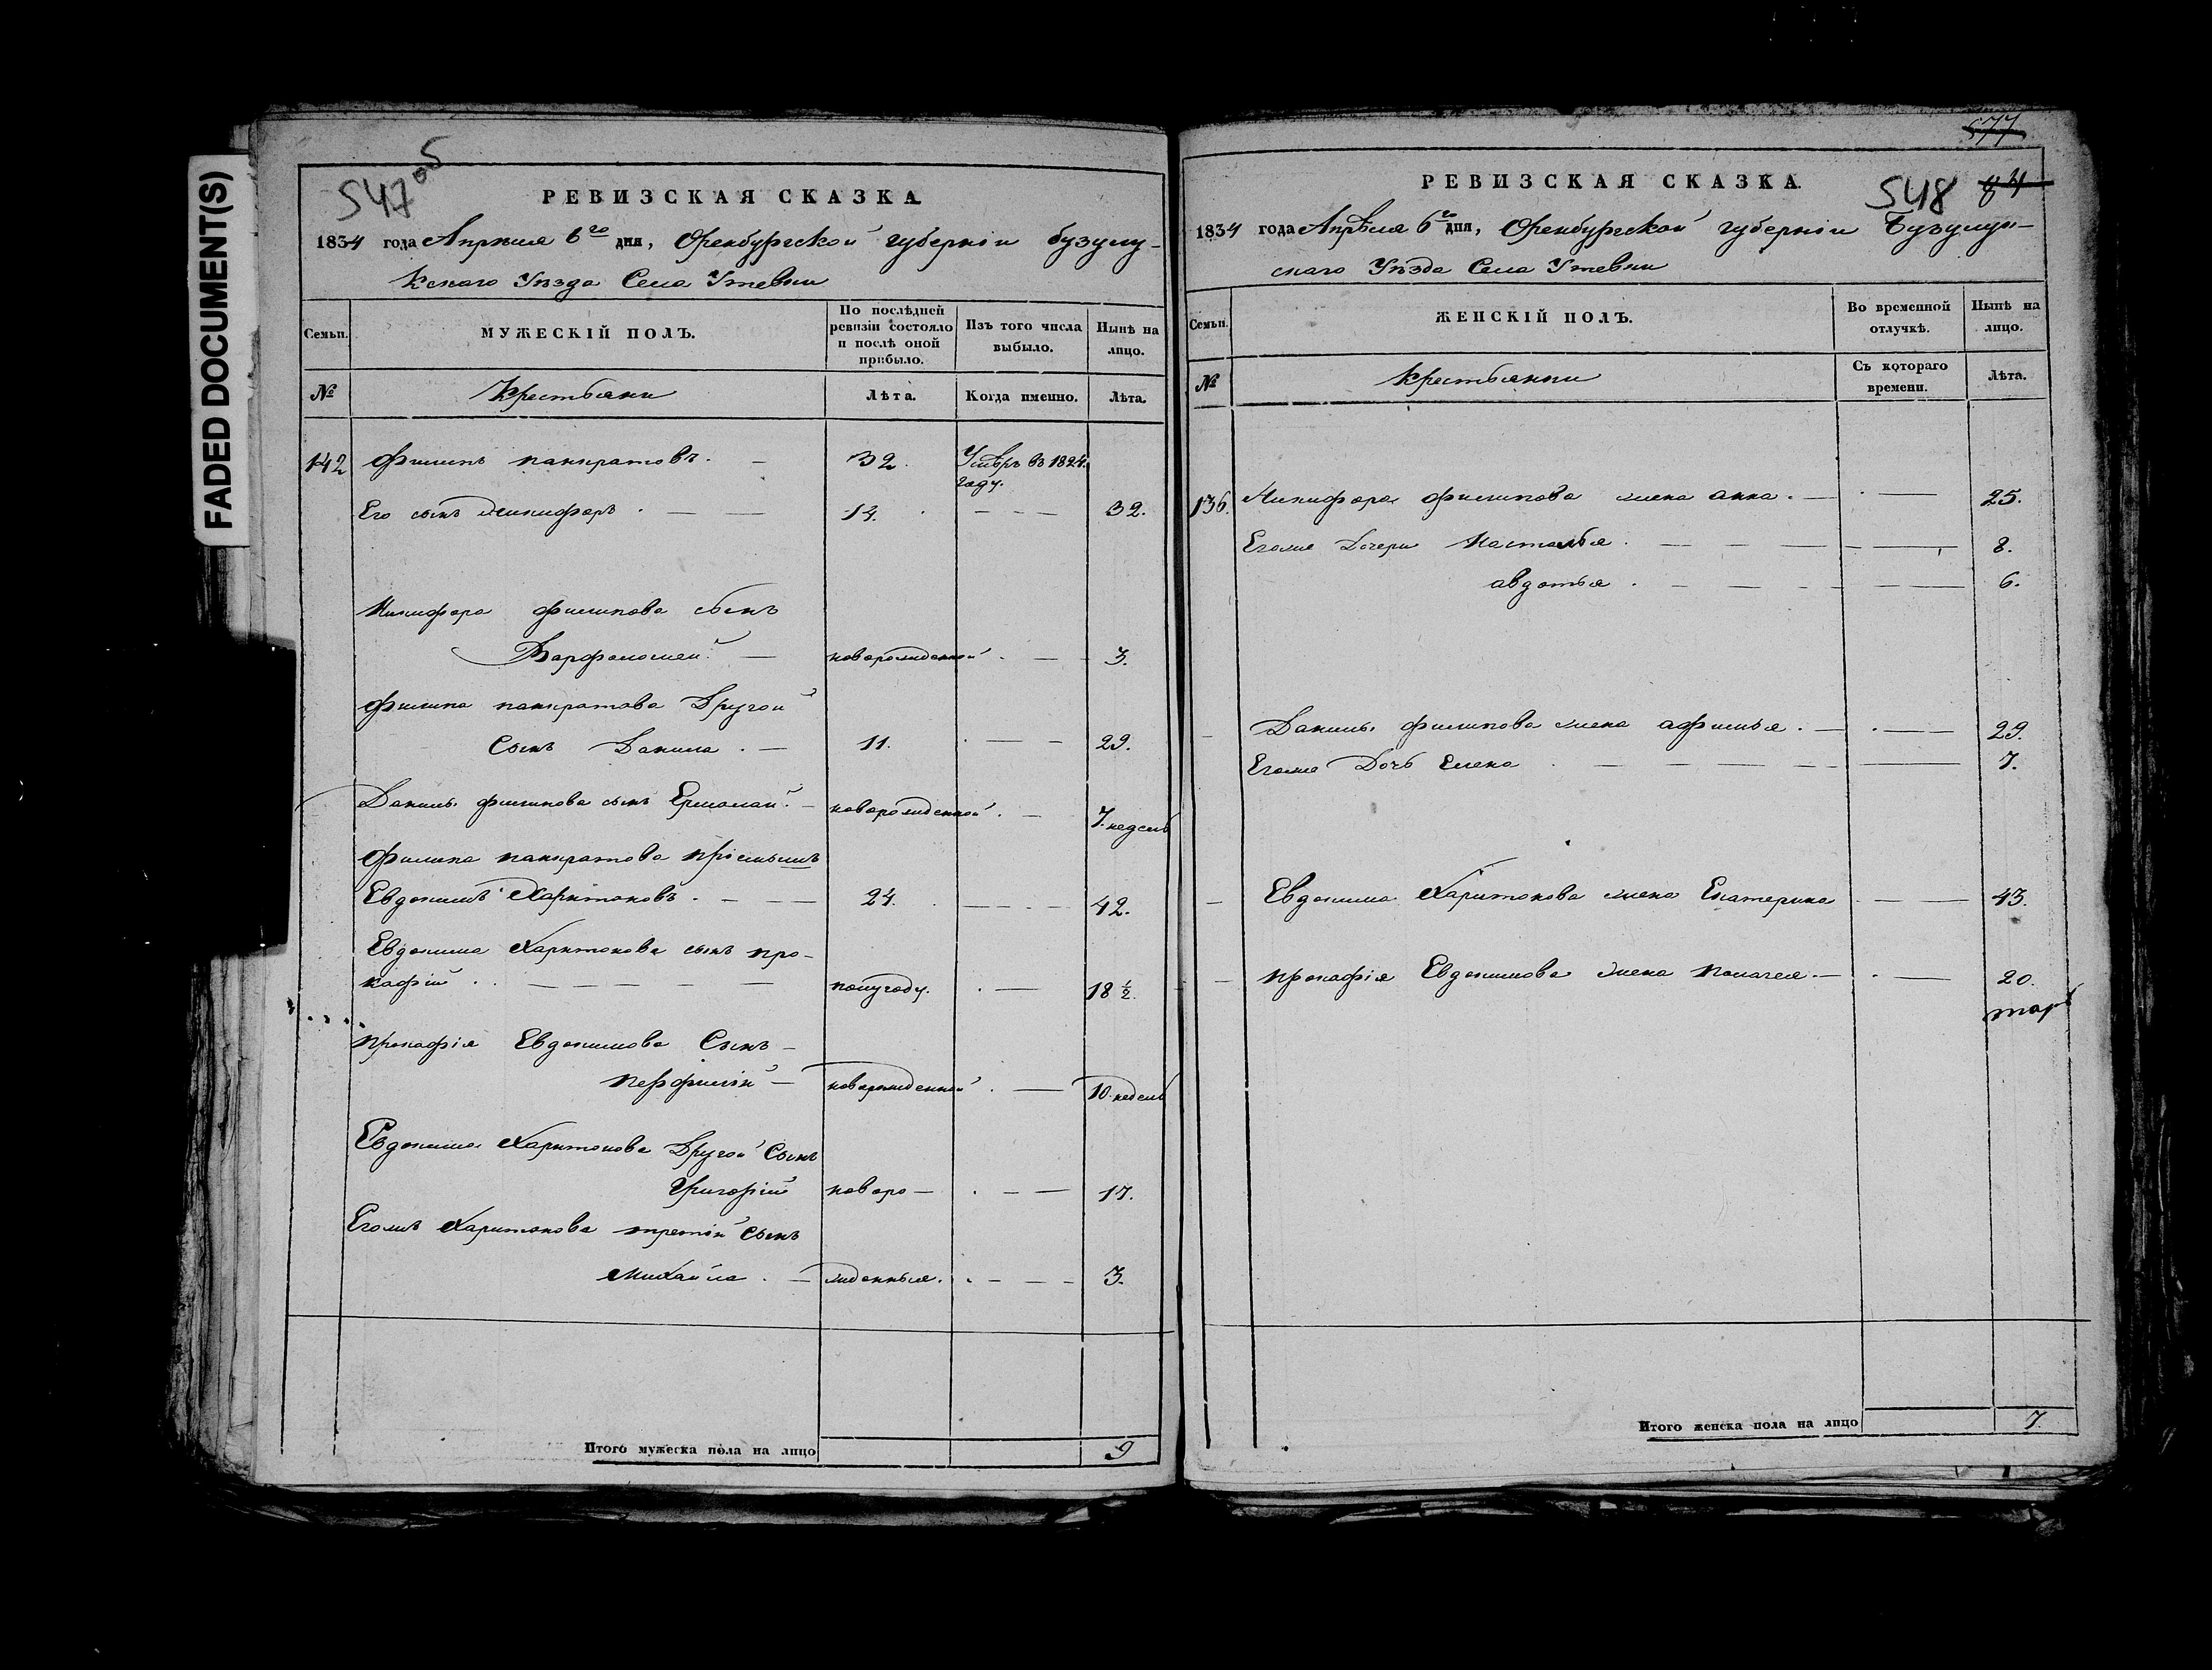 FADED DOCUMENT(S)
547 об
РЕВИЗСКАЯ СКАЗКА
1834 года Апрѣля 6го дня, Оренбургской губерніи бузулу-
кскаго Уѣзда Села Утевки
Семьи.
МУЖЕСКІЙ ПОЛЪ.
По послѣдней ревизіи состояло и послѣ оной прибыло.
Изъ того числа выбыло.
Нынѣ на лицо.
№
Крестьяни
Лѣта.
Когда именно.
Лѣта.
142 Филипъ панкратовъ. — 32. Умѣръ въ 1824.
году.
Его сынъ Никифоръ. — — 14. - - - 32.
Никифора филипова сынъ
Варфаломей. — новорожденной. — 3.
филипа панкратова Другой
Сынъ Данила. — 11. . — — 29.
Данилы филипова сынъ Ермолай. — новорожденной. — 7. недель
Филипа панкратова пріемышъ
Евдокимъ Харитоновъ. - — — 24. — - - - 42.
Евдокима Харитонова сынъ про-
кафій . . — — — — — полугоду. . — 18 ½.
прокафія Евдокимова Сынъ —
перфилій — новорожденной . — 10. недель
Евдокима Харитонова Другой Сынъ
Григорій новоро — . - — 17.
Егожъ Харитонова третій Сынъ
Михайла . — жденныя. . - — - 3.
Итого мужеска пола на лицо 9
577
548
РЕВИЗСКАЯ СКАЗКА.
1834 года Апрѣля 6го дня, Оренбургской губерніи Бузулук-
скаго Уѣзда Села Утевки
Семьи.
ЖЕНСКІЙ ПОЛЪ.
Во временной отлучкѣ.
Нынѣ на лицо.
№
Крестьянки
Съ котораго времени.
Лѣта.
136. Никифора филипова жена анна. — . — 25.
Егоже Дочери Настасья . — — — — — 8.
авдотья . — — — — — 6.
- Данилы филипова жена афимья. — . — — 29.
Егоже Дочь Елена . — — — — - — 7.
— Евдокима Харитонова жена Екатерина . — — 43.
— прокафія Евдокимова жена палагея. — . — 20.
Итого женска пола на лицо 7.